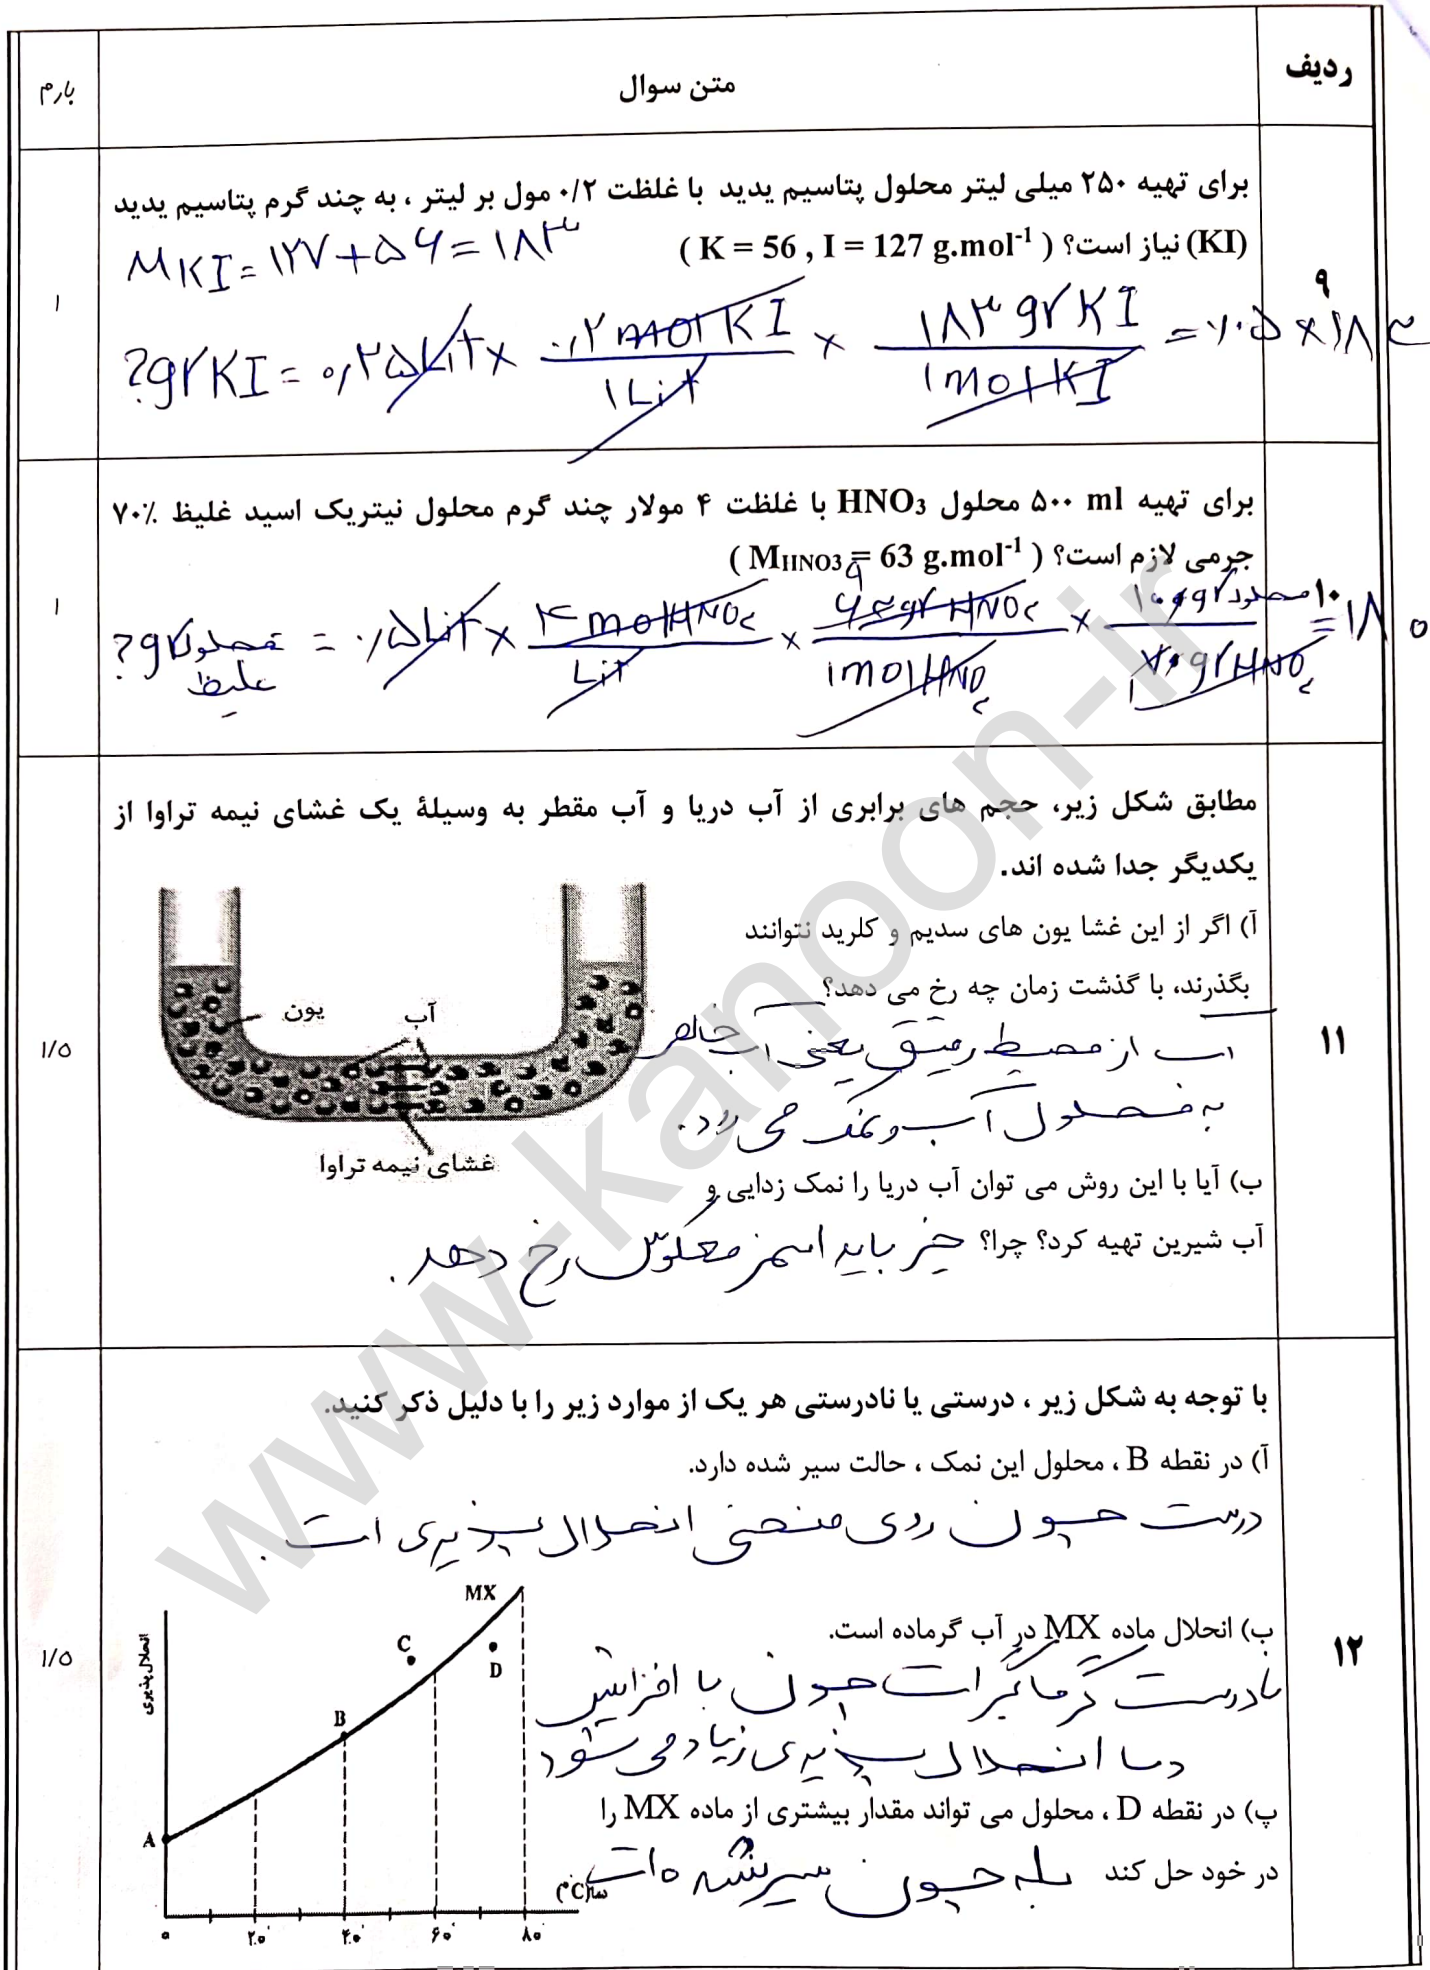 ردیف
متن سوال
بارم
برای تهیه ۲۵۰ میلی لیتر محلول پتاسیم یدید با غلظت ۰/۲ مول بر لیتر ، به چند گرم پتاسیم یدید
(KI) نیاز است؟ ( K = 56 , I = 127 g.mol⁻¹ )
MKI = ۱۲۷ + ۵۶ = ۱۸۳
۹
۱
?gr KI = ۰,۲۵ Lit × ۰,۲ mol KI / ۱ Lit × ۱۸۳ gr KI / ۱ mol KI = ۰.۰۵ × ۱۸۳
برای تهیه ۵۰۰ ml محلول HNO₃ با غلظت ۴ مولار چند گرم محلول نیتریک اسید غلیظ ۷۰٪
جرمی لازم است؟ ( MHNO3 = 63 g.mol⁻¹ )
۱۰
۱
?gr محلول غلیظ = ۰/۵ Lit × ۴ mol HNO₃ / Lit × ۶۳ gr HNO₃ / ۱ mol HNO₃ × ۱۰۰ gr محلول / ۷۰ gr HNO₃ = ۱۸۰
۹
۱
مطابق شکل زیر، حجم های برابری از آب دریا و آب مقطر به وسیلهٔ یک غشای نیمه تراوا از
یکدیگر جدا شده اند.
آ) اگر از این غشا یون های سدیم و کلرید نتوانند
بگذرند، با گذشت زمان چه رخ می دهد؟
آب از محیط رقیق یعنی آب خالص
به محلول آب و نمک می رود.
یون
آب
غشای نیمه تراوا
۱۱
۱/۵
ب) آیا با این روش می توان آب دریا را نمک زدایی و
آب شیرین تهیه کرد؟ چرا؟ خیر باید اسمز معکوس رخ دهد.
با توجه به شکل زیر ، درستی یا نادرستی هر یک از موارد زیر را با دلیل ذکر کنید.
آ) در نقطه B ، محلول این نمک ، حالت سیر شده دارد.
درست چون روی منحنی انحلال پذیری است.
ب) انحلال ماده MX در آب گرماده است.
نادرست گرماگیر است چون با افزایش
دما انحلال پذیری زیاد می شود
پ) در نقطه D ، محلول می تواند مقدار بیشتری از ماده MX را
در خود حل کند بله چون سیر نشده است
۱۲
۱/۵
انحلال‌پذیری
MX
C
D
B
A
دما(°C)
۰
۲۰
۴۰
۶۰
۸۰
www-kanoon-ir